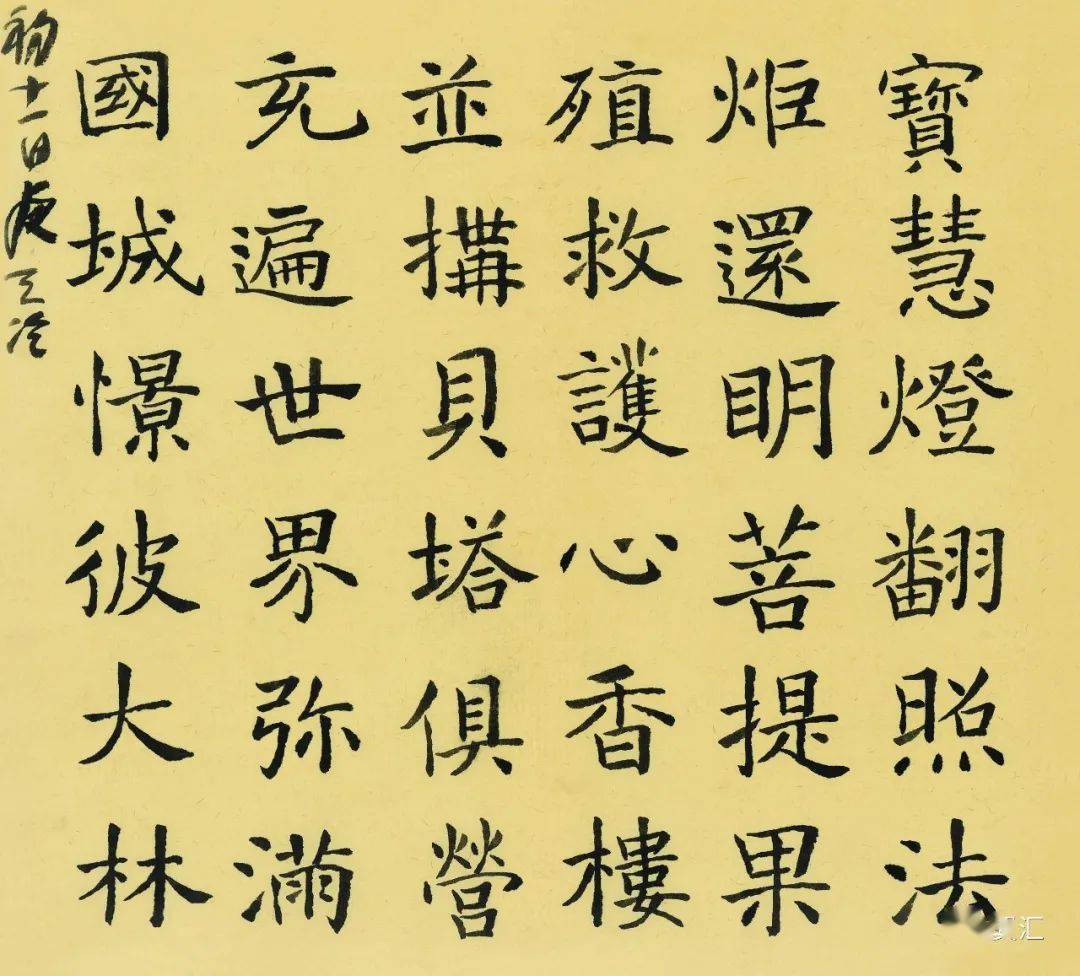 寶慧燈翻照法
炬還明菩提果
殖救護心香樓
並搆貝塔俱營
充遍世界弥滿
國城憬彼大林
初十一日
汇